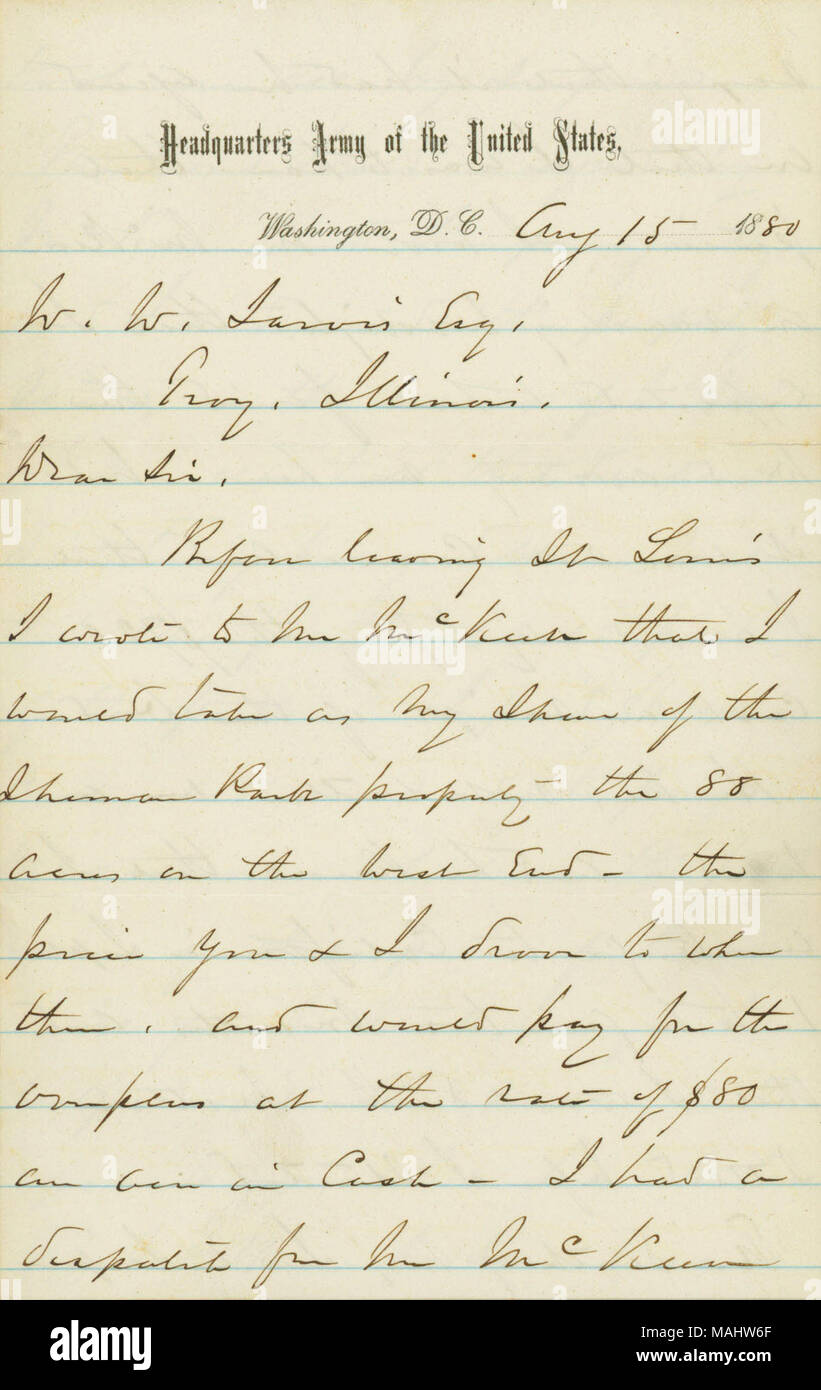 Headquarters Army of the United States,
Washington, D.C. Aug 15 1880
W. W. Jarvis Esq,
Troy, Illinois.
Dear Sir,
Before leaving St Louis
I wrote to Mr McKee that I
would take as my Share of the
Sherman Park property the 88
acres on the West End - the
piece you & I drove to when
there, and would pay for the
at the rate of $80
an acre in Cash - I had a
despatch fr Mr McKee
alamy
alamy
Image ID: MAHW6F
www.alamy.com